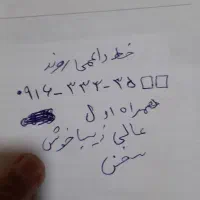 خط دائمی روند
۰۹۱۶-۳۳۳-۳۵□□
همراه اول
عالی زیبا خوش
سخن